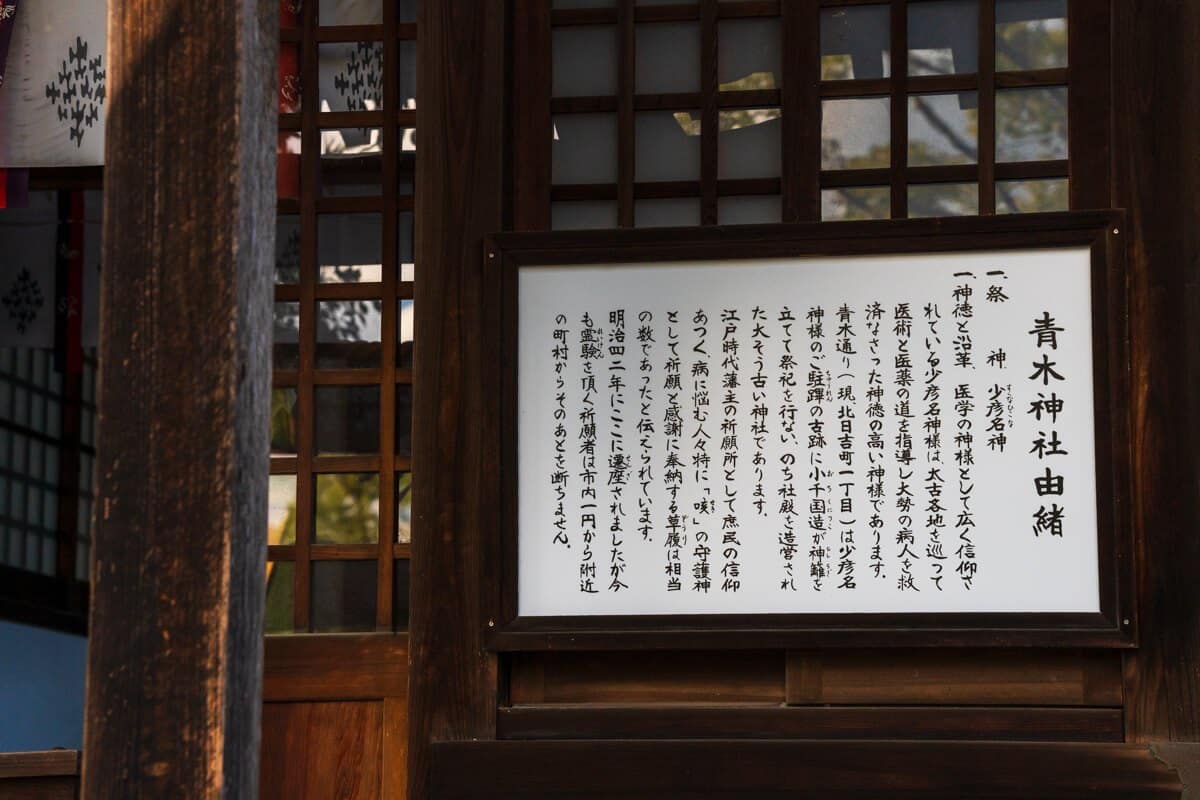 青木神社由緒
一、祭　神　少彦名神
一、神徳と沿革、医学の神様として広く信仰さ
れている少彦名神様は、太古各地を巡って
医術と医薬の道を指導し大勢の病人を救
済なさった神徳の高い神様であります。
青木通り(現、北日吉町一丁目)は少彦名
神様のご駐蹕の古跡に小千国造が神籬を
立てて祭祀を行ない、のち社殿を造営され
た大そう古い神社であります。
江戸時代藩主の祈願所として庶民の信仰
あつく、病に悩む人々特に「咳」の守護神
として祈願と感謝に奉納する草履は相当
の数であったと伝えられています。
明治四二年にここに遷座されましたが今
も霊験を頂く祈願者は市内一円から附近
の町村からそのあとを断ちません。